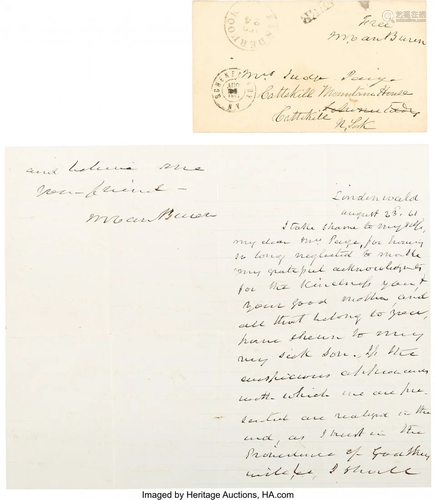 Free
M. Van Buren
KINDERHOOK
SCHENECTADY
N.Y.
Mrs Judge Paige
Cattskill Mountain House
Cattskill
N. York
Lindenwald
August 23. 61
I take shame to myself,
my dear Mrs Paige, for having
so long neglected to make
my grateful acknowledgments
for the kindness you, &
your good mother, and
all that belong to you,
have shewn to my
very sick son. If the
auspicious appearances
with which we are pre-
sented are realized in the
end, as I trust in the
Providence of God they
will be, I shall
and believe me
your friend
M. Van Buren
Imaged by Heritage Auctions, HA.com